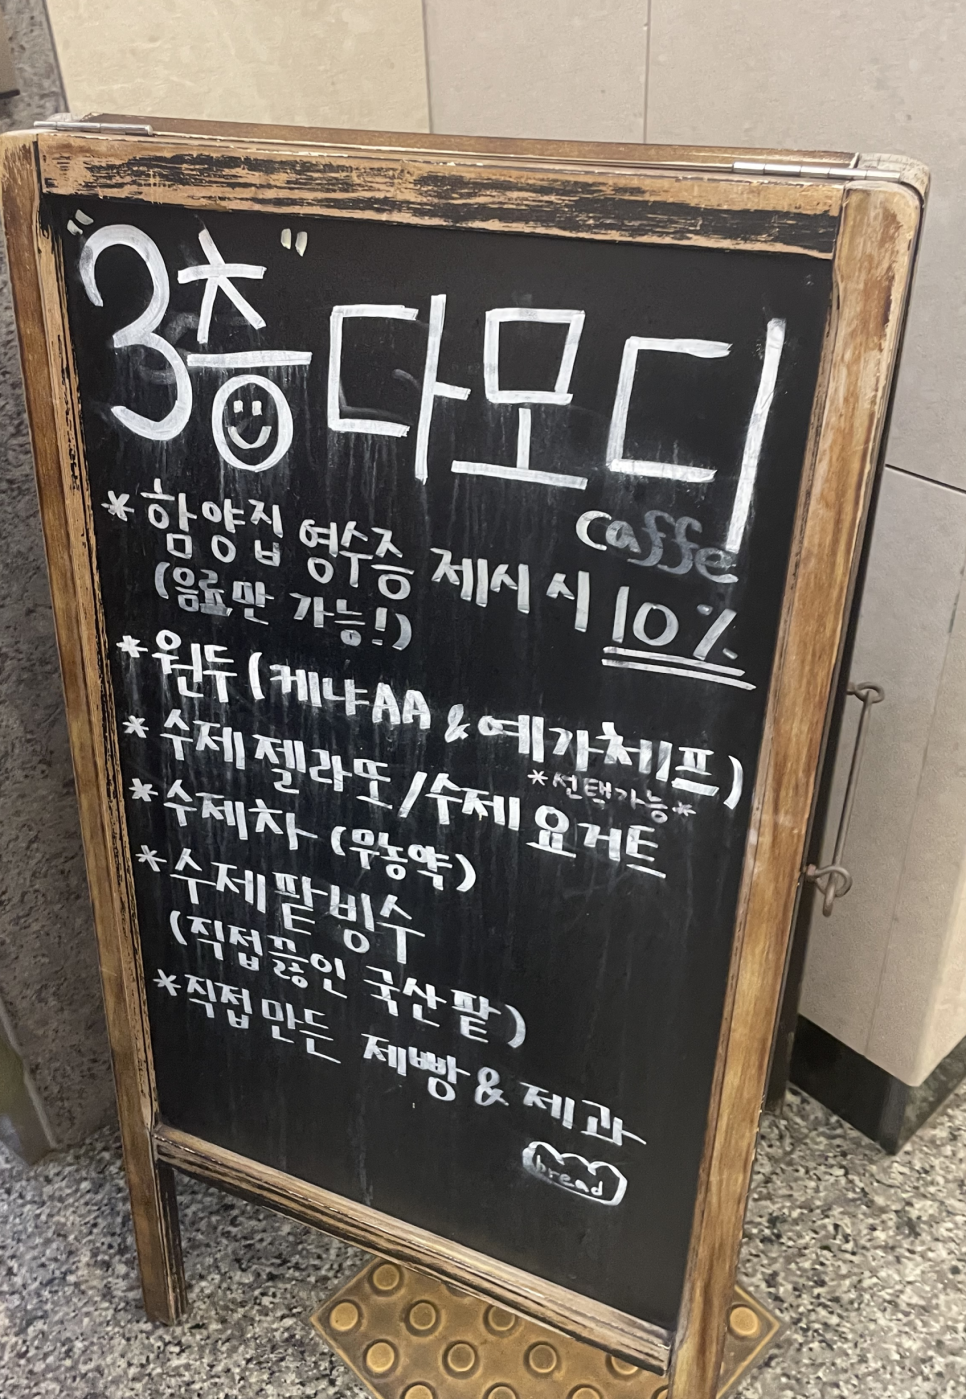 "3층" 다모디
caffe
*함양집 영수증 제시 시 10%
(음료만 가능!)
*원두 (케냐AA & 예가체프)
*선택가능*
*수제 젤라또 / 수제 요거트
*수제차 (무농약)
*수제팥빙수
(직접끓인 국산팥)
*직접만든 제빵 & 제과
bread